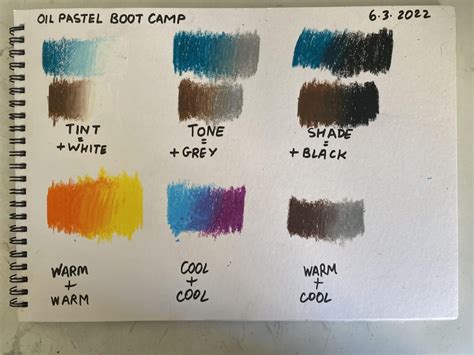 OIL PASTEL BOOT CAMP
6.3.2022
TINT
=
+ WHITE
TONE
=
+ GREY
SHADE
=
+ BLACK
WARM
+
WARM
COOL
+
COOL
WARM
+
COOL